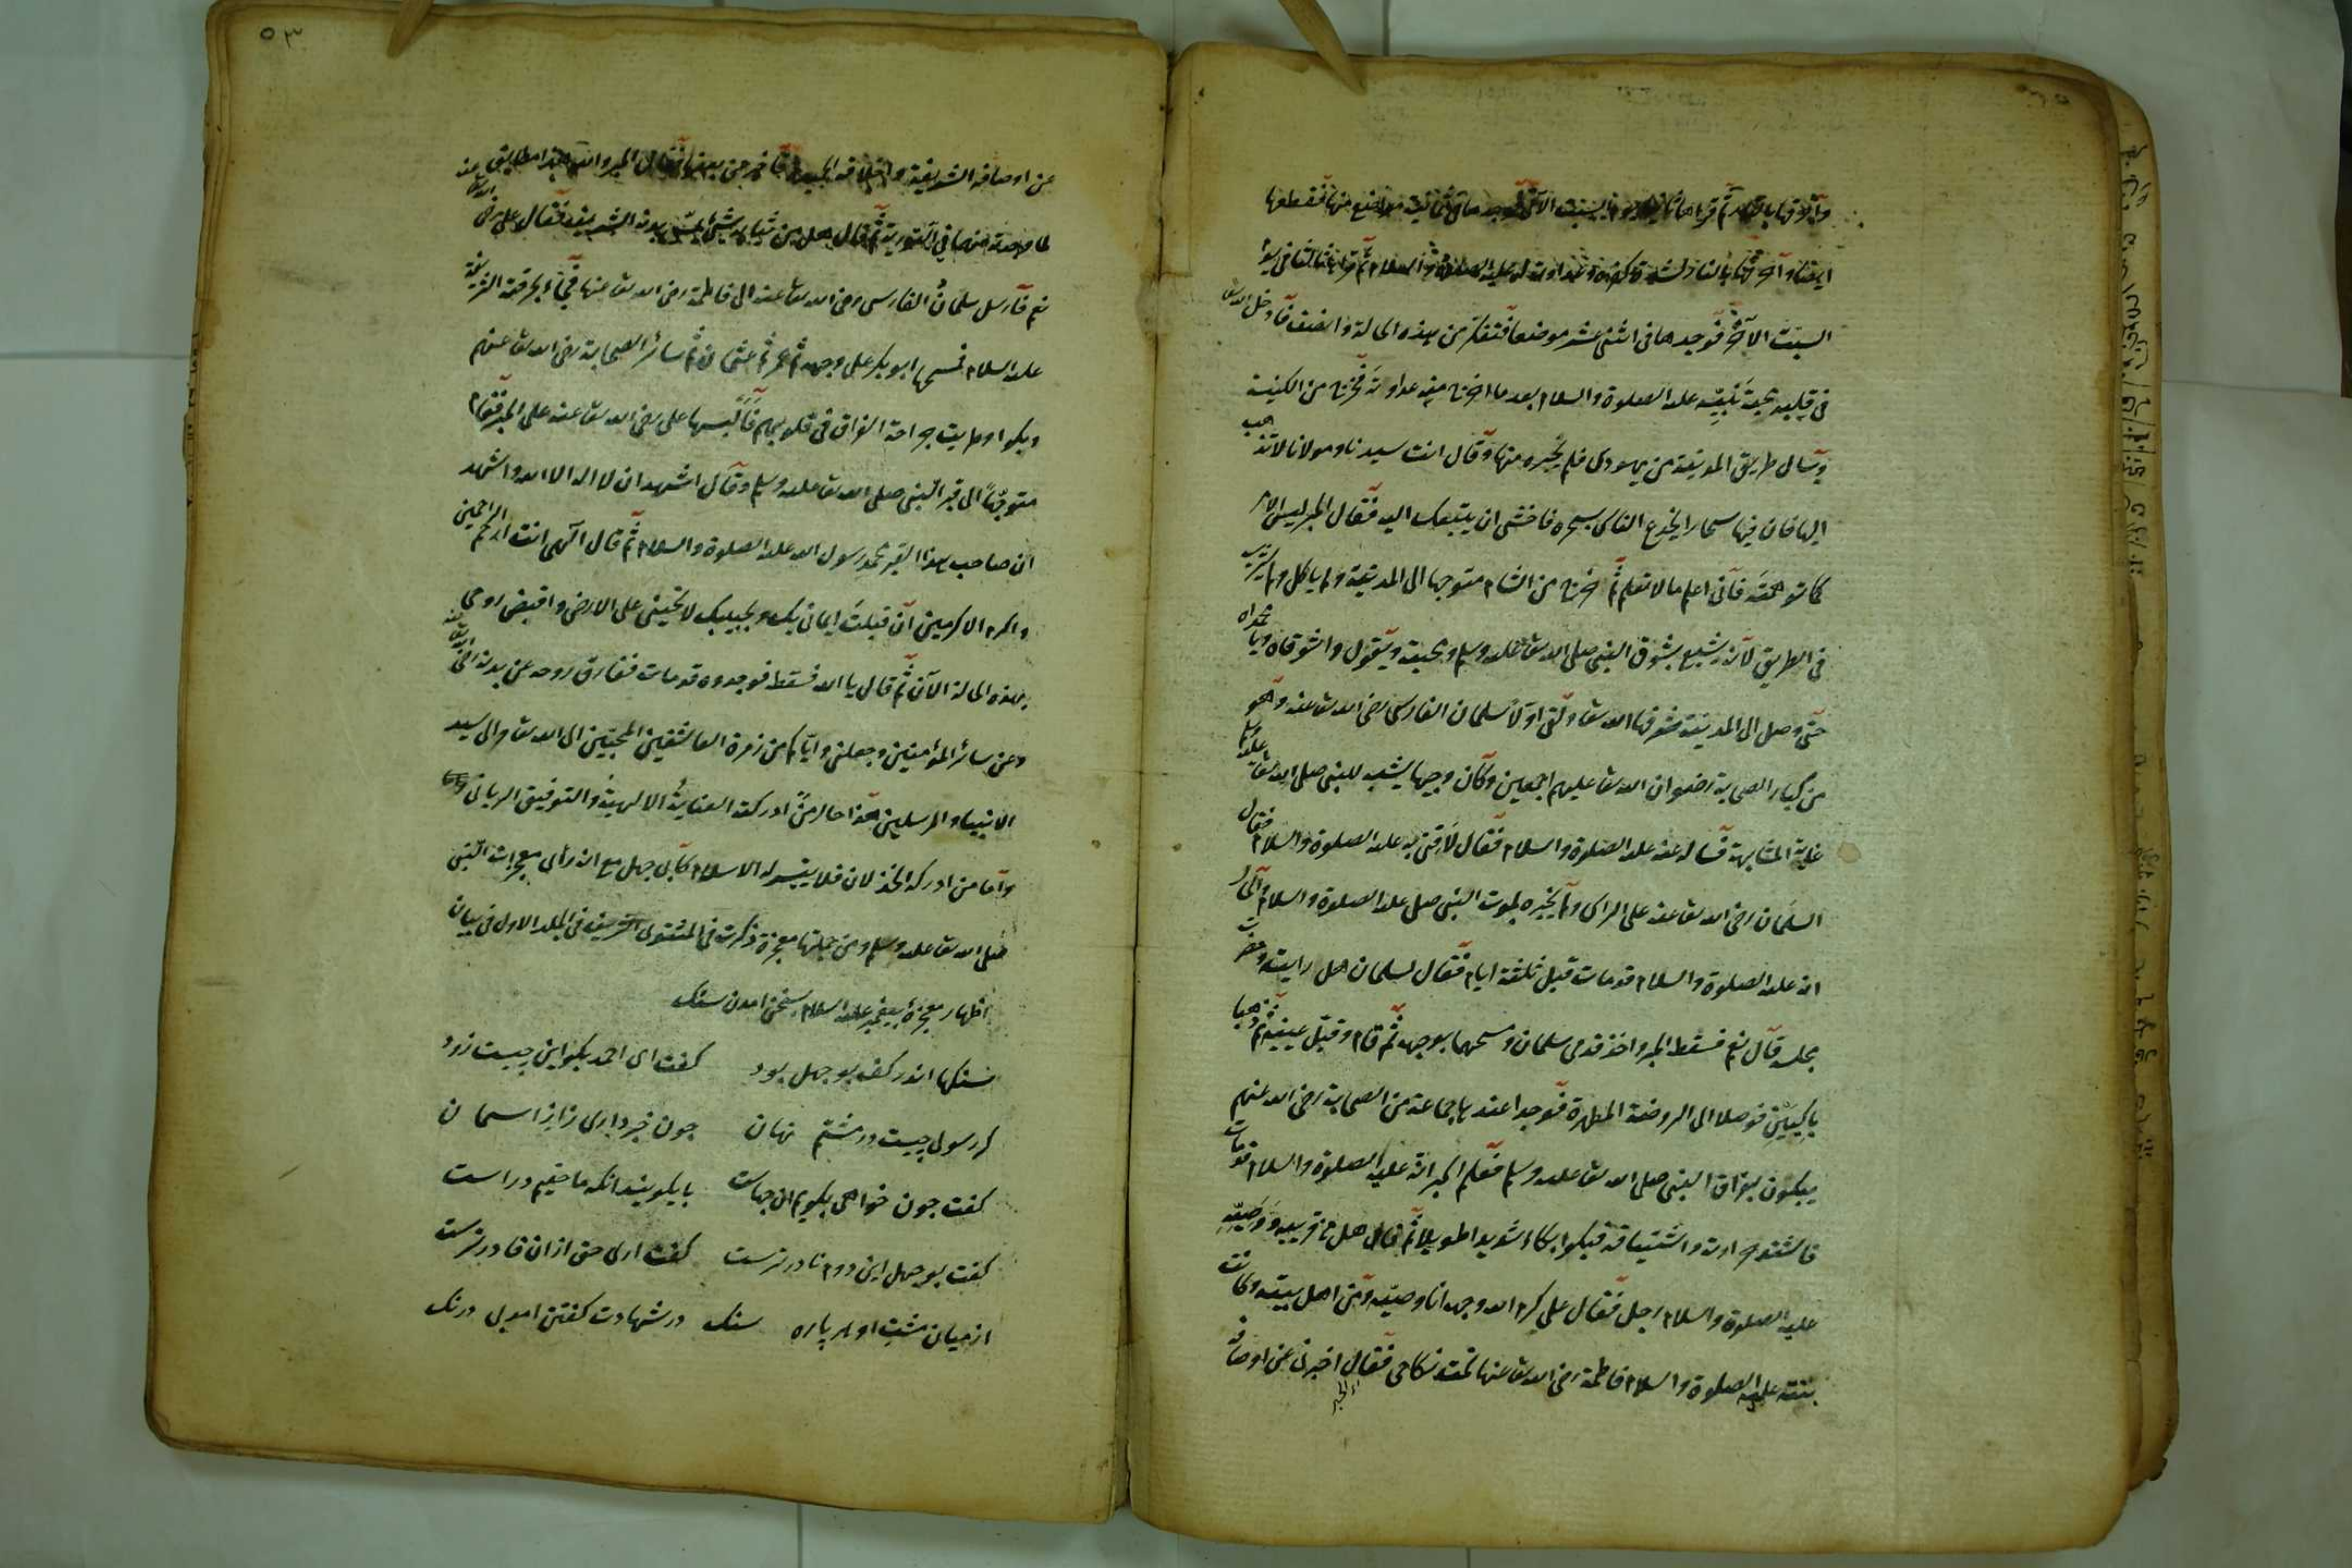 وآخرقها بالنار ثم قرأها ثانيا يوم السبت الآخر فوجدها في ثمانية مواضع منها فقطعها
ايضا وآخرقها بالنار لشدة كفره وعداوته له عليه الصلوة والسلام ثم قرأها ثالثا في يوم
السبت الآخر فوجدها في اثنى عشر موضعا فتفكر من هذه الحالة وانصف فادخل الله تعا
في قلبه محبة نبيه عليه الصلوة والسلام بعد ما اخرج منه عداوته فخرج من الكنيسة
وسأل طريق المدينة من يهودى فلم يخبره منها وقال انت سيدنا ومولانا لا تذهب
اليها فان فيها سحارا يخدع الناس بسحره فاخشى ان يتبعك اليه فقال الحبر ليس الامر
كما توهمته فاني اعلم ما لا تعلم ثم خرج من الشام متوجها الى المدينة ولم ياكل ولم يشرب
في الطريق لانه يشبع بشوق النبى صلى الله تعا عليه وسلم ومحبته ويقول واشوقاه ويا محمداه
حتى وصل الى المدينة شرفها الله تعا ولقى اولا سلمان الفارسى رضى الله تعا عنه وهو
من كبار الصحابة رضوان الله تعا عليهم اجمعين وكان وجيها يشبه للنبى صلى الله تعا عليه وسلم
غاية المشابهة فسأله عنه عليه الصلوة والسلام فقال لاقنى به عليه الصلوة والسلام فقال
السلمان رضى الله تعا عنه على الراس ولم يخبره بموت النبى صلى عليه الصلوة والسلام والحال
انه عليه الصلوة والسلام قد مات قبل ثلثة ايام فقال لسلمان هل رايت وحضرت
مجلسه قال نعم فسقط الحبر واخذ قدمى سلمان ومسحهما بوجهه ثم قام وقبل عينيه ثم ذهبا
باكيين فوصلا الى الروضة المطهرة فوجدا عندها جماعة من الصحابة رضى الله عنهم
يبكون بفراق النبى صلى الله تعا عليه وسلم فعلم الحبر انه عليه الصلوة والسلام قد مات
فاشتد حرارته واشتياقه فبكوا بكاء شديدا طويلا ثم قال هل من قريبه ووصيه
عليه الصلوة والسلام رجل فقال على كرم الله وجهه انا وصيه ومن اهل بيته وكانت
بنته عليه الصلوة والسلام فاطمة رضى الله تعا عنها تحت نكاحى فقال الحبر اخبرنى عن اوصافه
٥٣
عن اوصافه الشريفة واخلاقه الحميدة فاخبر عن بعضها فقال الحبر والله هذا مطابق
لما وجدته منها في التورية ثم قال هل من ثيابه شئ يمس بدنه الشريف فقال على رضى الله تعا عنه
نعم فارسل سلمان الفارسى رضى الله تعا عنه الى فاطمة رضى الله تعا عنها فجاء بخرقته الشريفة
عليه السلام فمسحها ابو بكر على وجهه ثم عمر ثم عثمان ثم سائر الصحابة رضى الله تعا عنهم
وبكوا وصارت جراحة الفراق في قلوبهم فالبسها على رضى الله تعا عنه على الحبر فقام
متوجها الى قبر النبى صلى الله تعا عليه وسلم وقال اشهد ان لا اله الا الله واشهد
ان صاحب هذا القبر محمد رسول الله عليه الصلوة والسلام ثم قال الهى انت ارحم الراحمين
واكرم الاكرمين ان قبلت ايمانى بك وبحبيبك لا تخيبنى على الارض واقبض روحى
بهذه الحالة الآن ثم قال يا الله فسقط فوجدوه قد مات ففارق روحه عن بدنه رضى الله تعا عنه
وعن سائر المؤمنين وجعلنى واياكم من زمرة العاشقين المحبين الى الله تعا والى سيد
الانبياء والمرسلين هذا حال من ادركته العناية الالهية والتوفيق الربانى
واما من ادركه الخذلان فلا ييسر له الاسلام كابى جهل مع انه رأى معجزات النبى
صلى الله تعا عليه وسلم ومن جملتها معجزة ذكرت في المثنوى الشريف في الجلد الاول في بيان
اظهار معجزة پيغمبر عليه السلام بسخن امدن سنك
سنكها اندر كف بو جهل بود كفت اى احمد بكو اين چيست زود
كر رسولى چيست در مشتم نهان چون خبر دارى ز راز اسمان
كفت چون خواهى بكويم ان چهاست يا بكويند انكه ما حقيم وراست
كفت بو جهل اين دوم نادر ترست كفت ارى حق ازان قادر ترست
از ميان مشت او هر پاره سنك در شهادت كفتن امد بى درنك